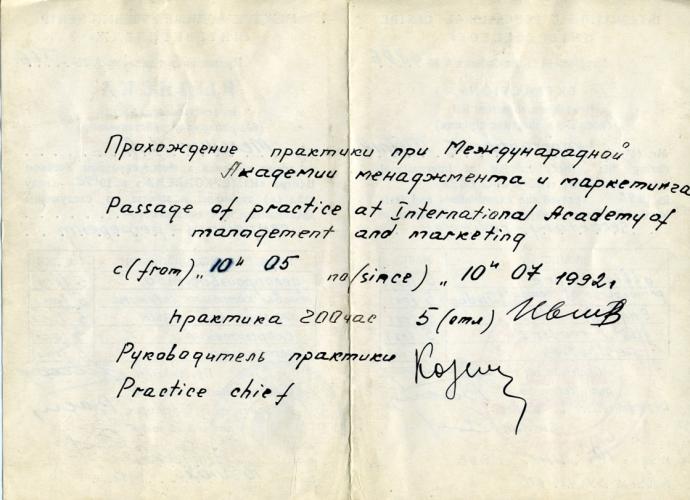 Прохождение практики при Международной
Академии менаджмента и маркетинга
Passage of practice at International Academy of
management and marketing
с (from) „10" 05 по (since) „10" 07 1992г
практика 200 час 5 (отл)
Руководитель практики
Practice chief